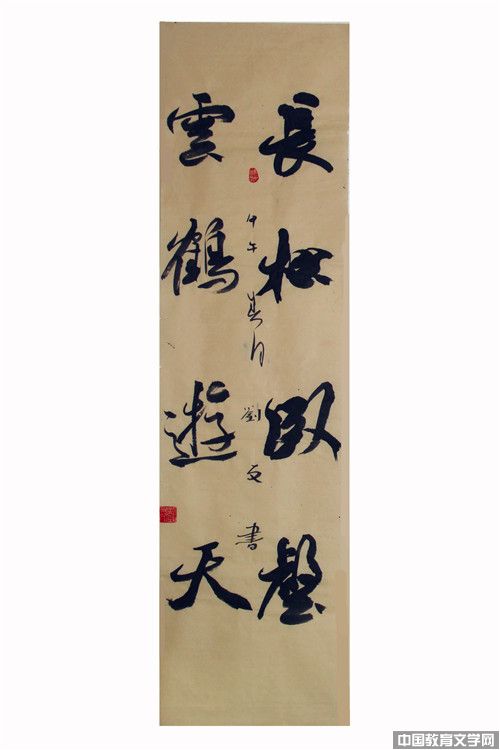 長松臥
雲鶴遊天
甲午春月劉書
中国教育文学网